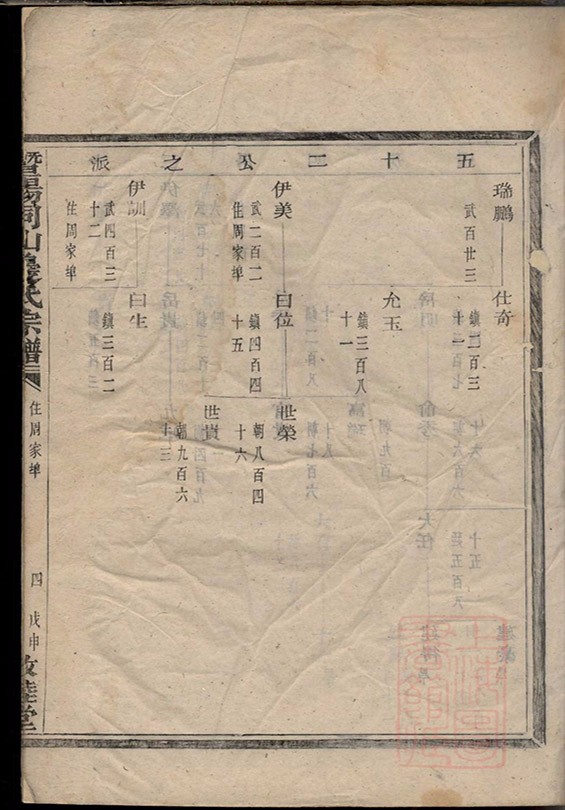 五十二公之派
瑞鵬
武百廿三
仕奇
鎮二百三
十一
允玉
鎮三百八
十一
伊美
武二百二
住周家埠
曰位
鎮四百四
十五
世榮
朝八百四
十六
世貴
朝九百六
十三
伊訓
武四百三
十二
住周家埠
曰生
鎮三百二
暨陽同山 氏宗譜
住周家埠
四
戊申
敦睦堂